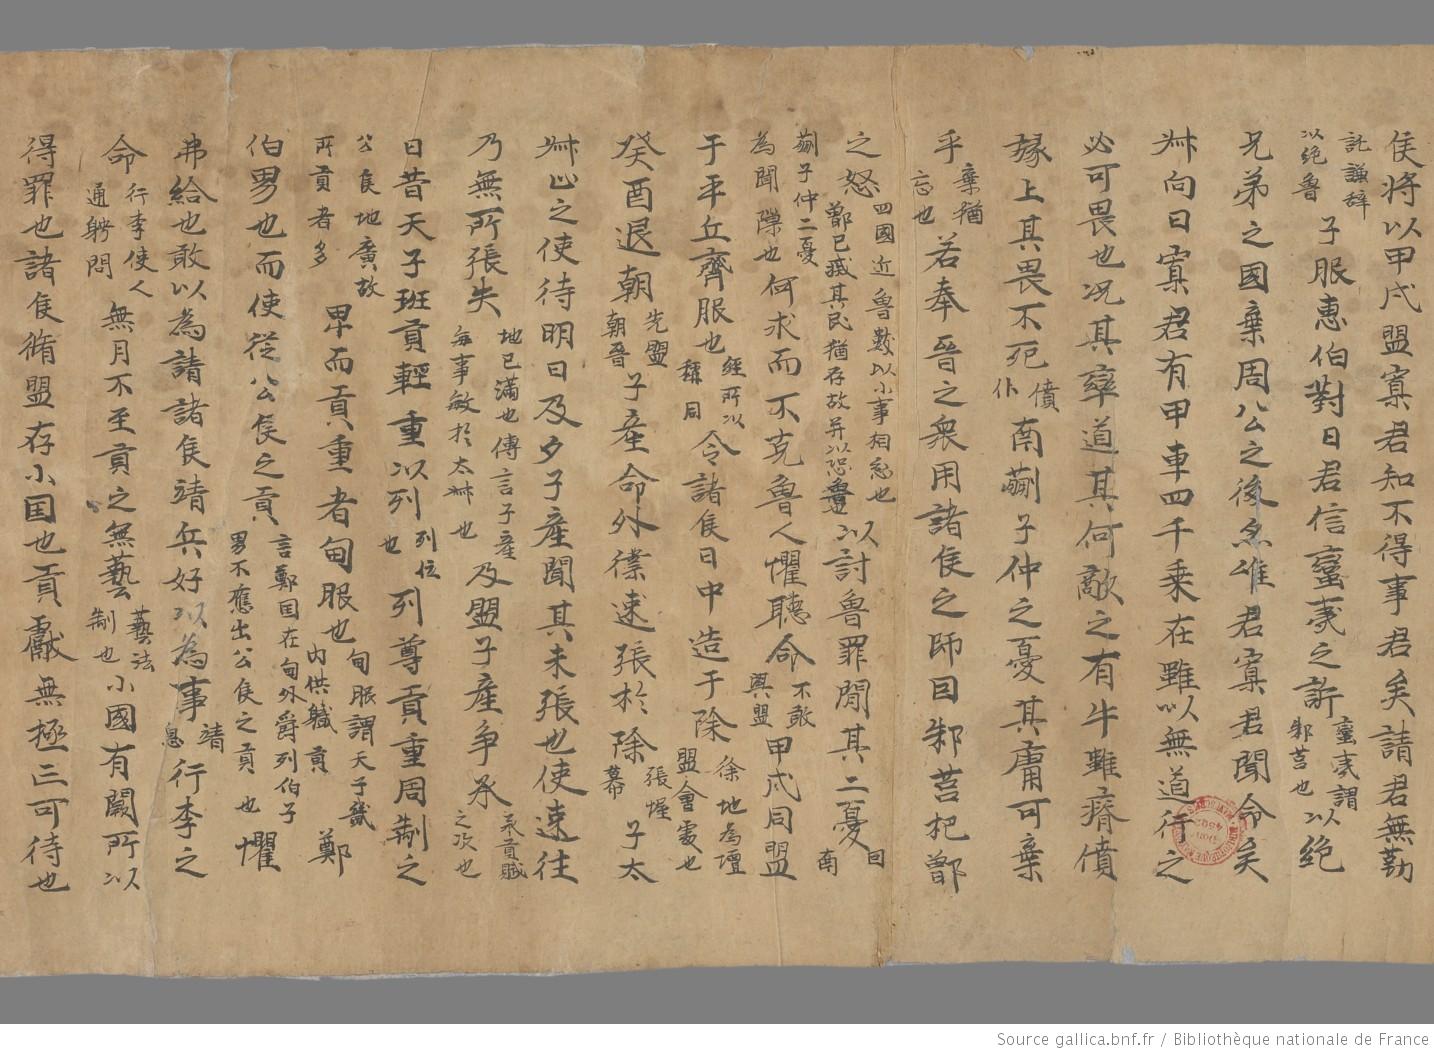 侯將以甲戌盟寡君知不得事君矣請君無勤
託謙辞
以絶魯
子服惠伯對曰君信蠻夷之訴
蠻夷謂
邾莒也
以絶
兄弟之國棄周公之後忽唯君寡君聞命矣
州向曰寡君有甲車四千乘在雖以無道行之
必可畏也况其率道其何敵之有牛雖瘠僨
於豚上其畏不死
僨
仆
南蒯子仲之憂其庸可棄
乎
棄猶
忘也
若奉晉之衆用諸侯之師因邾莒杞鄫
之怒
四國近魯數以小事相忿也
鄫已滅其民猶存故并以恐魯
以討魯罪閒其二憂
因南
蒯子仲二憂
為閒隙也
何求而不克魯人懼聽命
不敢
與盟
甲戌同盟
于平丘齊服也
經所以
稱同
令諸侯日中造于除
除地為壇
盟會處也
癸酉退朝
先盟
朝晉
子產命外僕速張於除
張幄
幕
子太
州止之使待明日及夕子產聞其未張也使速往
乃無所張矣
地已滿也傳言子產
每事敏於太州也
及盟子產争承
承貢賦
之次也
曰昔天子班貢輕重以列
列位
也
列尊貢重周制之
公侯地廣故
所貢者多
卑而貢重者甸服也
甸服謂天子畿
內供軄貢
鄭
伯男也而使從公侯之貢
言鄭国在甸外爵列伯子
男不應出公侯之貢也
懼
弗給也敢以為請諸侯靖兵好以為事
靖
息
行李之
命
行李使人
通聘問
無月不至貢之無藝
藝法
制也
小國有闕所以
得罪也諸侯脩盟存小国也貢獻無極亡可待也
Source gallica.bnf.fr / Bibliothèque nationale de France